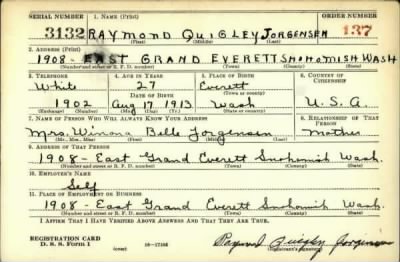 SERIAL NUMBER 1. NAME (Print) ORDER NUMBER
3132 RAYMOND QUIGLEY JORGENSEN 137
(First) (Middle) (Last)
2. ADDRESS (Print)
1908 - EAST GRAND EVERETT SNOHOMISH WASH
(Number and street or R. F. D. number) (Town) (County) (State)
3. TELEPHONE 4. AGE IN YEARS 5. PLACE OF BIRTH 6. COUNTRY OF CITIZENSHIP
White 27 Everett
DATE OF BIRTH (Town or county)
1902 Aug 17 1913 Wash U.S.A.
(Exchange) (Number) (Mo.) (Day) (Yr.) (State or country)
7. NAME OF PERSON WHO WILL ALWAYS KNOW YOUR ADDRESS 8. RELATIONSHIP OF THAT PERSON
Mrs. Winona Belle Jorgensen Mother
(Mr., Mrs., Miss) (First) (Middle) (Last)
9. ADDRESS OF THAT PERSON
1908 - East Grand Everett Snohomish Wash.
(Number and street or R. F. D. number) (Town) (County) (State)
10. EMPLOYER'S NAME
Self
11. PLACE OF EMPLOYMENT OR BUSINESS
1908 - East Grand Everett Snohomish Wash.
(Number and street or R. F. D. number) (Town) (County) (State)
I AFFIRM THAT I HAVE VERIFIED ABOVE ANSWERS AND THAT THEY ARE TRUE.
REGISTRATION CARD
D. S. S. Form 1 (over) 16-17105 Raymond Quigley Jorgensen
(Registrant's signature)